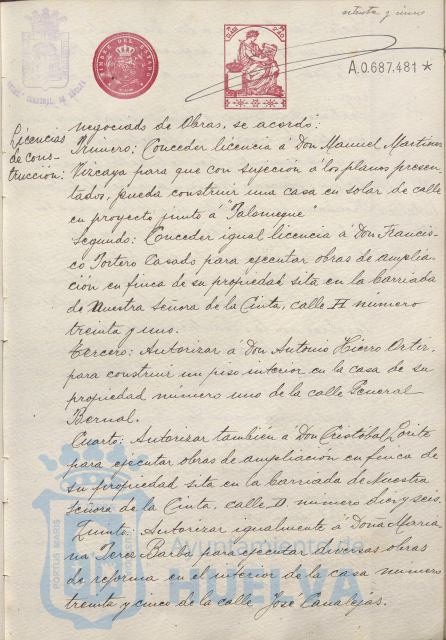 setenta y uno
TIMBRE DEL ESTADO
A.0.687.481 *
Licencias de cons- trucción:
negociado de Obras, se acordó:
Primero: Conceder licencia á Don Manuel Martínez
Vizcaya para que con sujeción á los planos presen-
tados, pueda construir una casa en solar de calle
en proyecto junto á "Palomeque"
Segundo: Conceder igual licencia á Don Francis-
co Tortero Casado para ejecutar obras de amplia-
ción en finca de su propiedad sita en la barriada
de Nuestra Señora de la Cinta, calle H numero
treinta y uno.
Tercero: Autorizar á Don Antonio Hierro Ortiz
para construir un piso interior en la casa de su
propiedad numero uno de la calle General
Bernal.
Cuarto: Autorizar también á Don Cristóbal Lorite
para ejecutar obras de ampliación en finca de
su propiedad sita en la barriada de Nuestra
Señora de la Cinta, calle D numero diez y seis.
Quinto: Autorizar igualmente á Doña Maria
na Perez Barba para ejecutar diversas obras
de reforma en el interior de la casa numero
treinta y cinco de la calle José Canalejas.
Ayuntamiento de
HUELVA
PORTUS MARIS